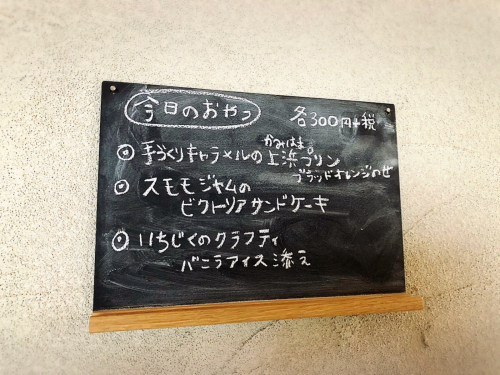 今日のおやつ
各300円+税
かみはま
手づくりキャラメルの上浜プリン
ブラッドオレンジのせ
スモモジャムの
ビクトリアサンドケーキ
いちじくのクラフティ
バニラアイス添え